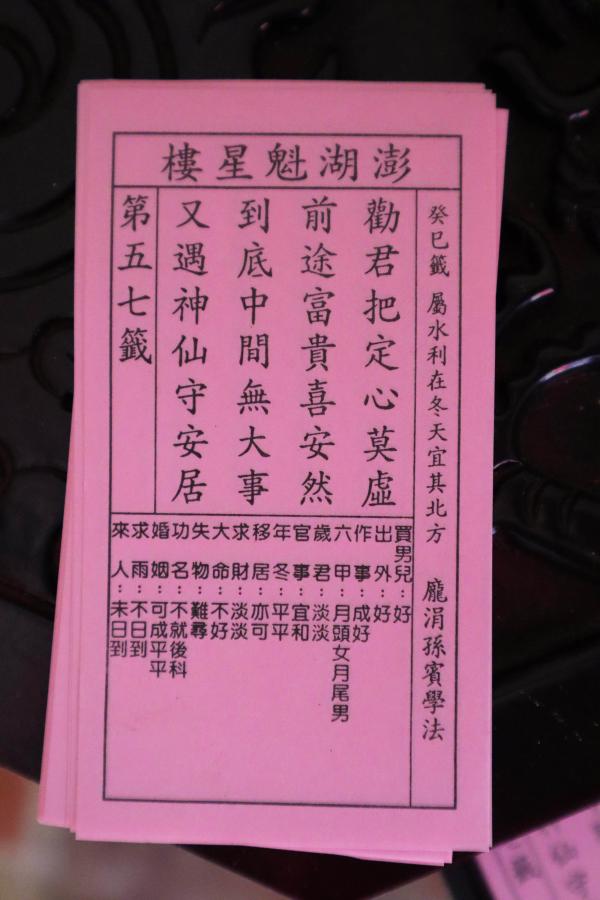 澎湖魁星樓
癸巳籤 屬水利在冬天宜其北方 龐涓孫賓學法
勸君把定心莫虛
前途富貴喜安然
到底中間無大事
又遇神仙守安居
第五七籤
買男兒：好
出外：好
作事：成好
六甲：月頭女月尾男
歲君：淡淡
官事：宜和
年冬：平平
移居：亦可
求財：淡淡
大命：不好
失物：難尋
功名：不就後科
婚姻：可成平平
求雨：不日到
來人：未日到